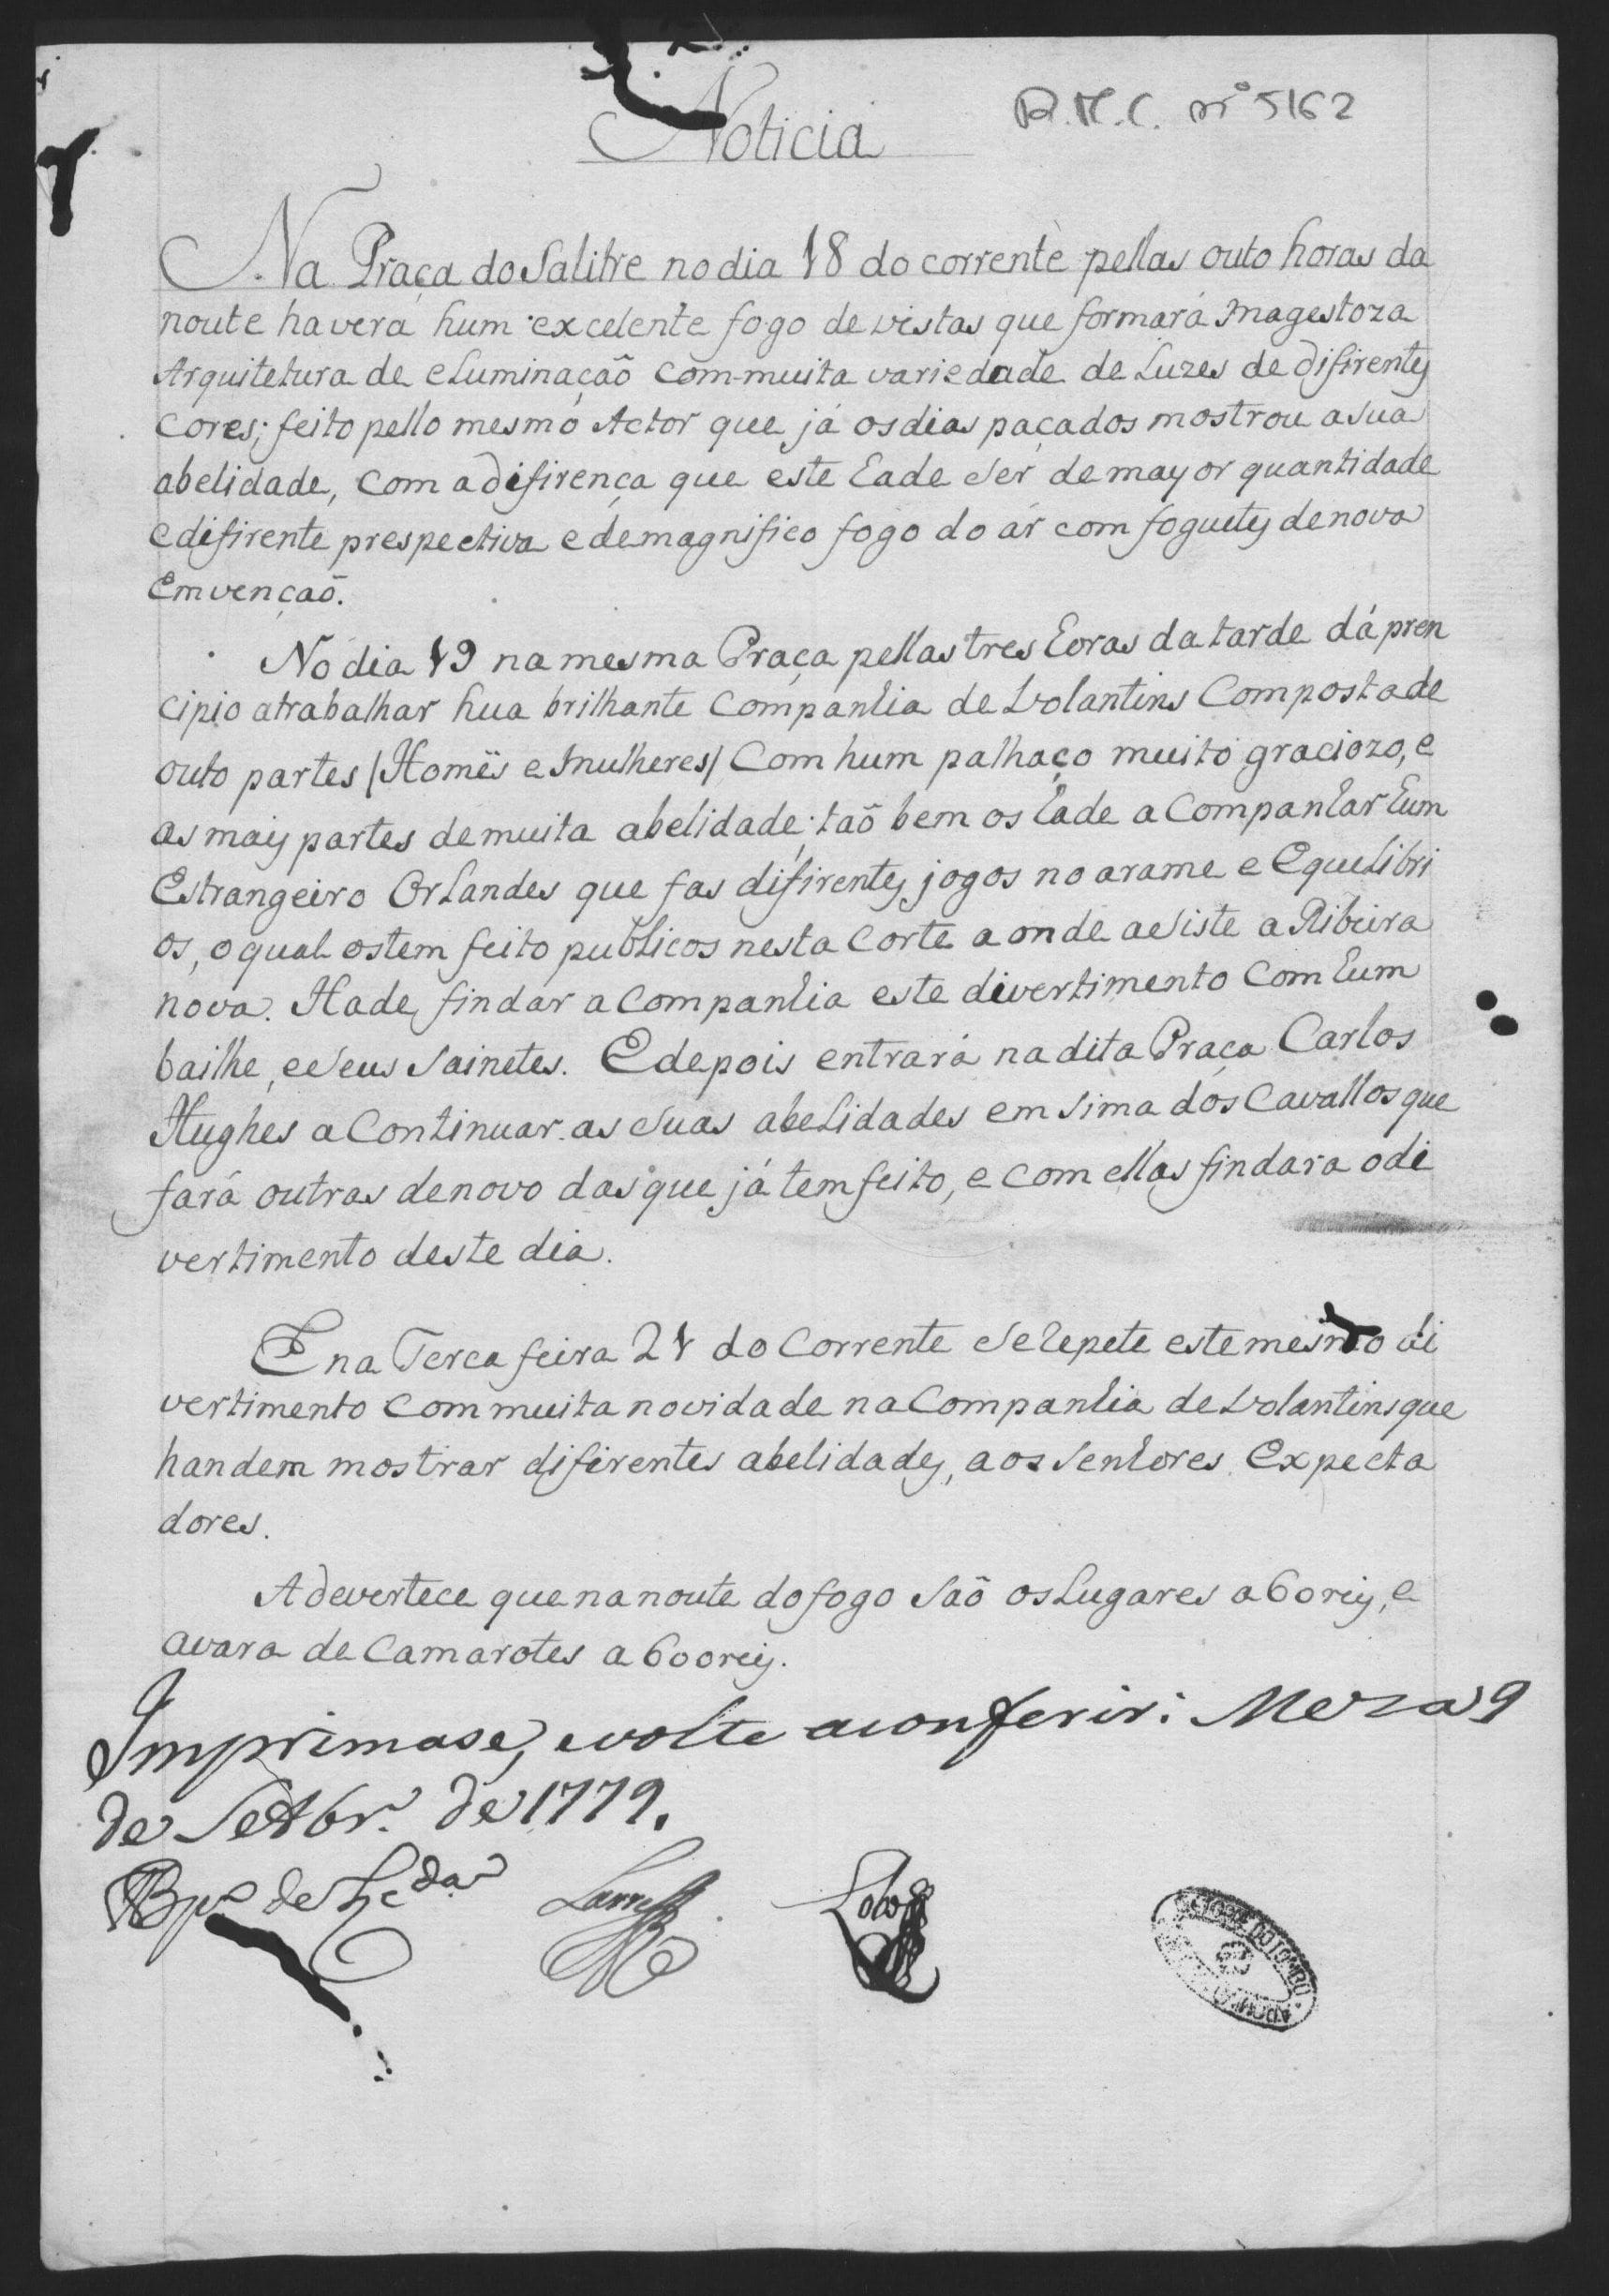 R.M.C. nº 5162
Noticia
Na Praça do Salitre no dia 18 do corrente pellas outo horas da
noute havera hum excelente fogo de vistas que formará magestoza
Arquitetura de eluminaçaõ com muita variedade de Luzes de difirentes
cores; feito pello mesmo Actor que já os dias paçados mostrou a sua
abelidade, com a difirença que este hade ser de mayor quantidade
e difirente prespectiva e de magnifico fogo do ár com foguetes de nova
emvençaõ.
No dia 19 na mesma Praça pellas tres horas da tarde dá pren
cipio a trabalhar hua brilhante companhia de volantins composta de
outo partes /Homẽs e mulheres/ com hum palhaço muito graciozo, e
as mais partes de muita abelidade; taõ bem os hade acompanhar hum
Estrangeiro Orlandes que fas difirentes jogos no arame e Equelibri
os, o qual os tem feito publicos nesta Corte a onde asiste a Ribeira
nova. Hade findar a companhia este divertimento com hum
bailhe, e seus sainetes. E depois entrará na dita Praça Carlos
Hughes a continuar as suas abelidades em sima dos Cavallos que
fará outras de novo das que já tem feito, e com ellas findara o di
vertimento deste dia.
E na Terca feira 21 do corrente se repete este mesmo di
vertimento com muita novidade na companhia de volantins que
handem mostrar difirentes abelidades, aos senhores Expecta
dores.
Adevertece que na noute do fogo saõ os Lugares a 60 reis, e
a vara de Camarotes a 600 reis.
Imprimase, e volte a conferir. Meza 9
de Setbr.º de 1779.
Bpº de
Lobo
TORRE DO TOMBO